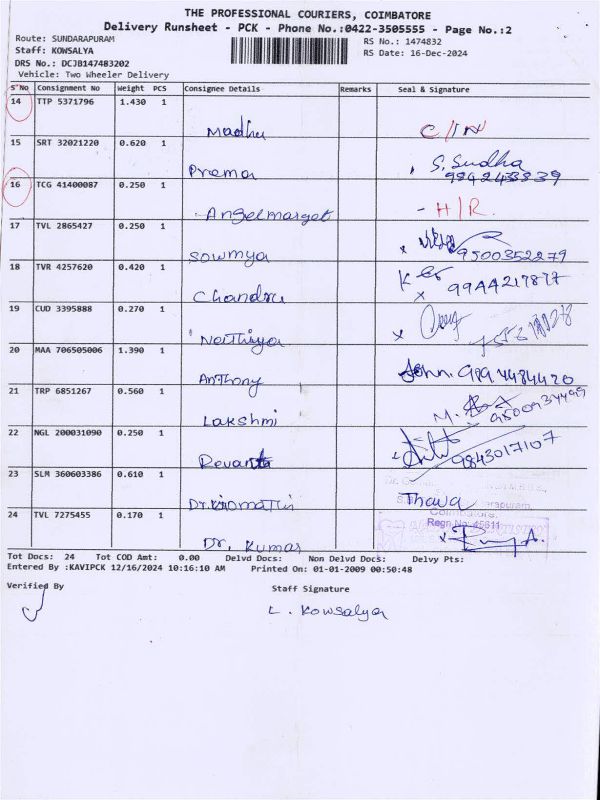 THE PROFESSIONAL COURIERS, COIMBATORE
Delivery Runsheet - PCK - Phone No.:0422-3505555 - Page No.:2
Route: SUNDARAPURAM RS No.: 1474832
Staff: KOWSALYA RS Date: 16-Dec-2024
DRS No.: DCJB147483202
Vehicle: Two Wheeler Delivery
S'No Consignment No Weight PCS Consignee Details Remarks Seal & Signature
14 TTP 5371796 1.430 1
Madhu
15 SRT 32021220 0.620 1
Prema S. Sudha
16 TCG 41400087 0.250 1
Angelmarget - H/R.
17 TVL 2865427 0.250 1
Sowmya 9500352279
18 TVR 4257620 0.420 1
Chandru 9944217877
19 CUD 3395888 0.270 1
20 MAA 706505006 1.390 1
Anthony John. 9194484420
21 TRP 6851267 0.560 1
Lakshmi M. 9500934499
22 NGL 200031090 0.250 1
9843017107
23 SLM 360603386 0.610 1
Thava
Coimbatore.
24 TVL 7275455 0.170 1
Regn No: 45611
Dr. Kumar
Tot Docs: 24 Tot COD Amt: 0.00 Delvd Docs: Non Delvd Docs: Delvy Pts:
Entered By :KAVIPCK 12/16/2024 10:16:10 AM Printed On: 01-01-2009 00:50:48
Verified By Staff Signature
L. Kowsalya